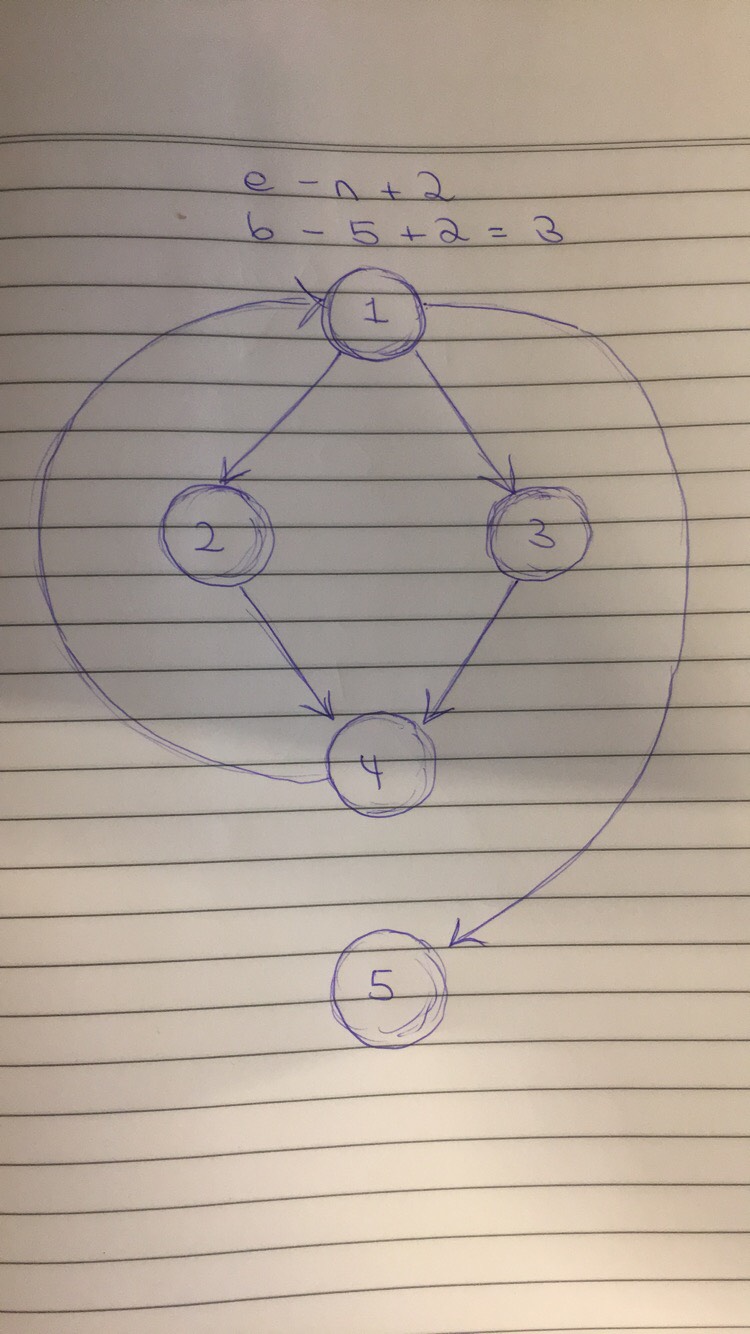 e - n + 2
6 - 5 + 2 = 3
1
2 3
4
5